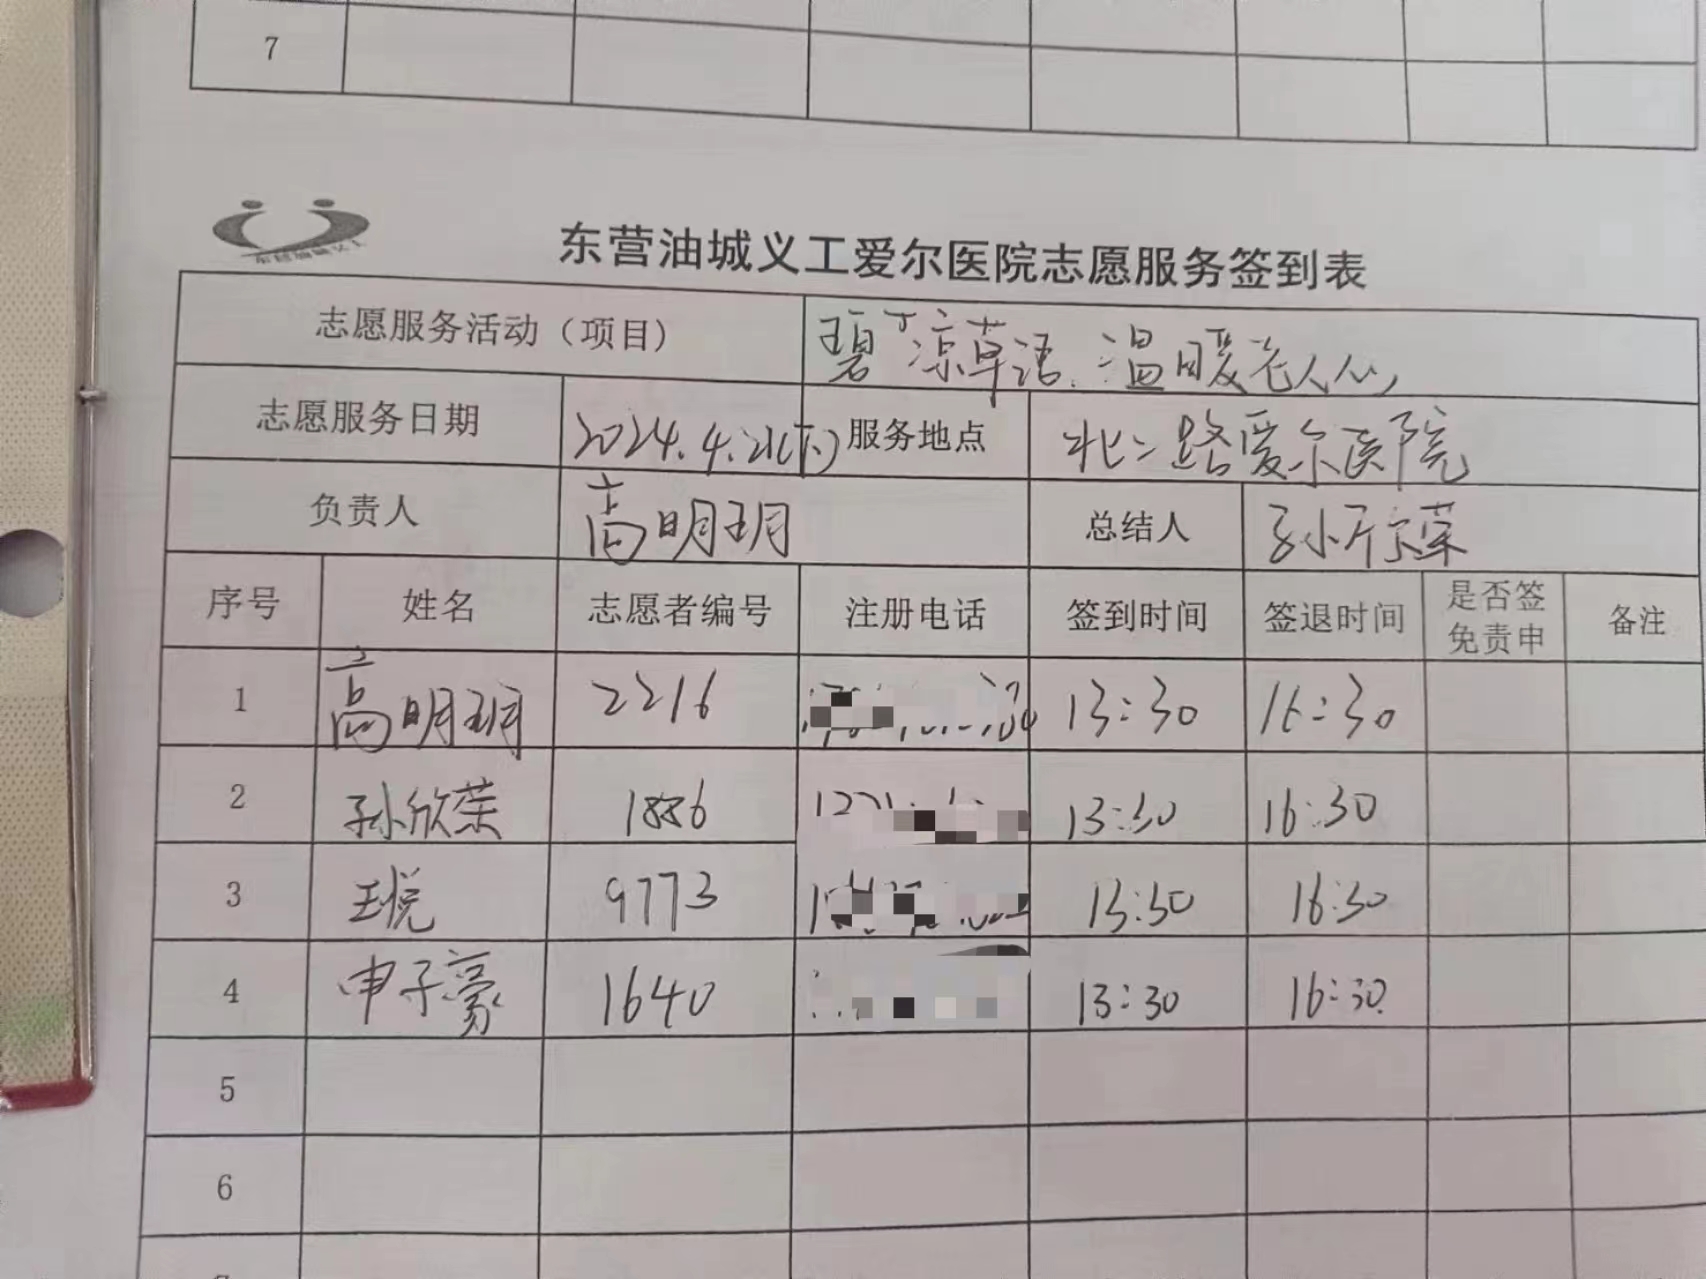 7
东营油城义工爱尔医院志愿服务签到表
志愿服务活动（项目） 碧 凉草语、温暖老人心
志愿服务日期 2024.4.21(下) 服务地点 北二路爱尔医院
负责人 高明玥 总结人 孙欣荣
序号 姓名 志愿者编号 注册电话 签到时间 签退时间 是否签免责申 备注
1 高明玥 2216 13:30 16:30
2 孙欣荣 1886 13:30 16:30
3 王悦 9773 13:30 16:30
4 申子豪 1640 13:30 16:30
5
6